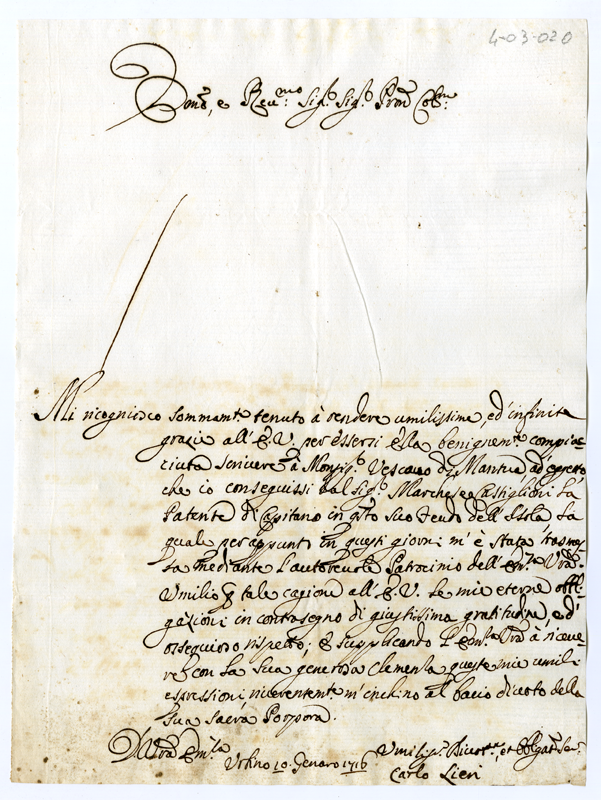 4-03-020
Em̃o, e Reu.mo Sig.r Sig.r Pron Col.mo
Mi ricognosco sommamte tenuto à rendere umilissime, ed' infinite
grazie all' E.V. per essersi Ella benignamte compia-
ciuta scriuere à Monsig.r Vescouo di Mantua ad' effetto
che io conseguissi dal Sig.r Marchese Castiglioni la
Patente di Capitano in qsto suo feudo dell' Isola la
quale per appunto in questi giorni m' è stata trasmes-
sa mediante l'autoreuole Patrocinio dell' Em.za Vrã.
Umilio p tale cagione all' E.V. le mie eterne obli-
gazioni in contrasegno di giustissima gratitudine, ed'
ossequioso rispetto, e supplicando l' Em.za Vrã à riceue-
re con la sua generosa Clemenza queste mie umili
espressioni riuerentemte m'inchino al bacio diuoto della
sua sacra Porpora.
D.Vrã Em.za
Urbino 10. Genaro 1716
Umilis.o Diuot.o, et Obligat.o Ser.
Carlo Lieri